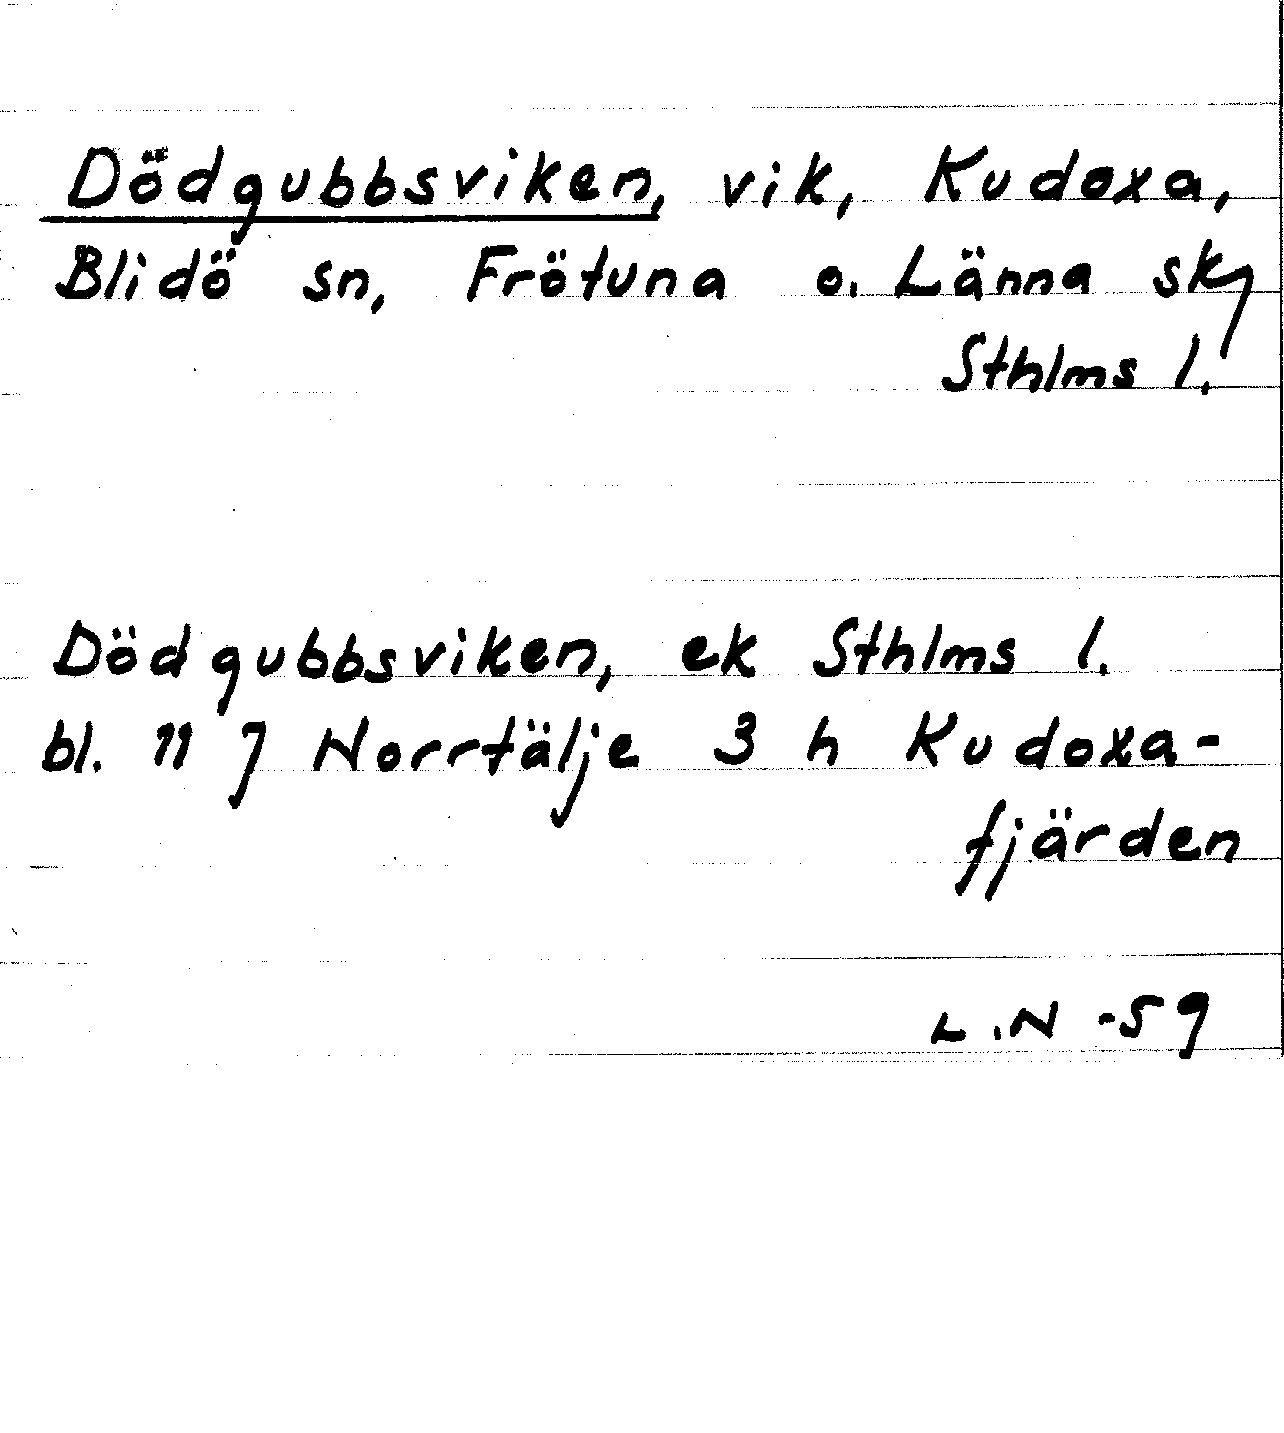 Dödgubbsviken, vik, Kudoxa,
Blidö sn, Frötuna o. Länna sk,
Sthlms l.
Dödgubbsviken, ek Sthlms l.
bl. 11 J Norrtälje 3 h Kudoxa-
fjärden
L.N -59